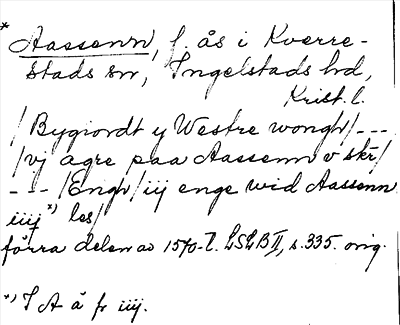 * Aassenn, f. ås i Kverre-
stads sn, Ingelstads hd,
Krist. l.
/Bygiordt y Westre wongh/---
/vj agre paa Aassenn v skr/
---/Engh/iij enge wid Aassenn
iiij *) les/
förra delen av 1570-t. LSLB II, s. 335. orig.
*) I A ä fr iiij.